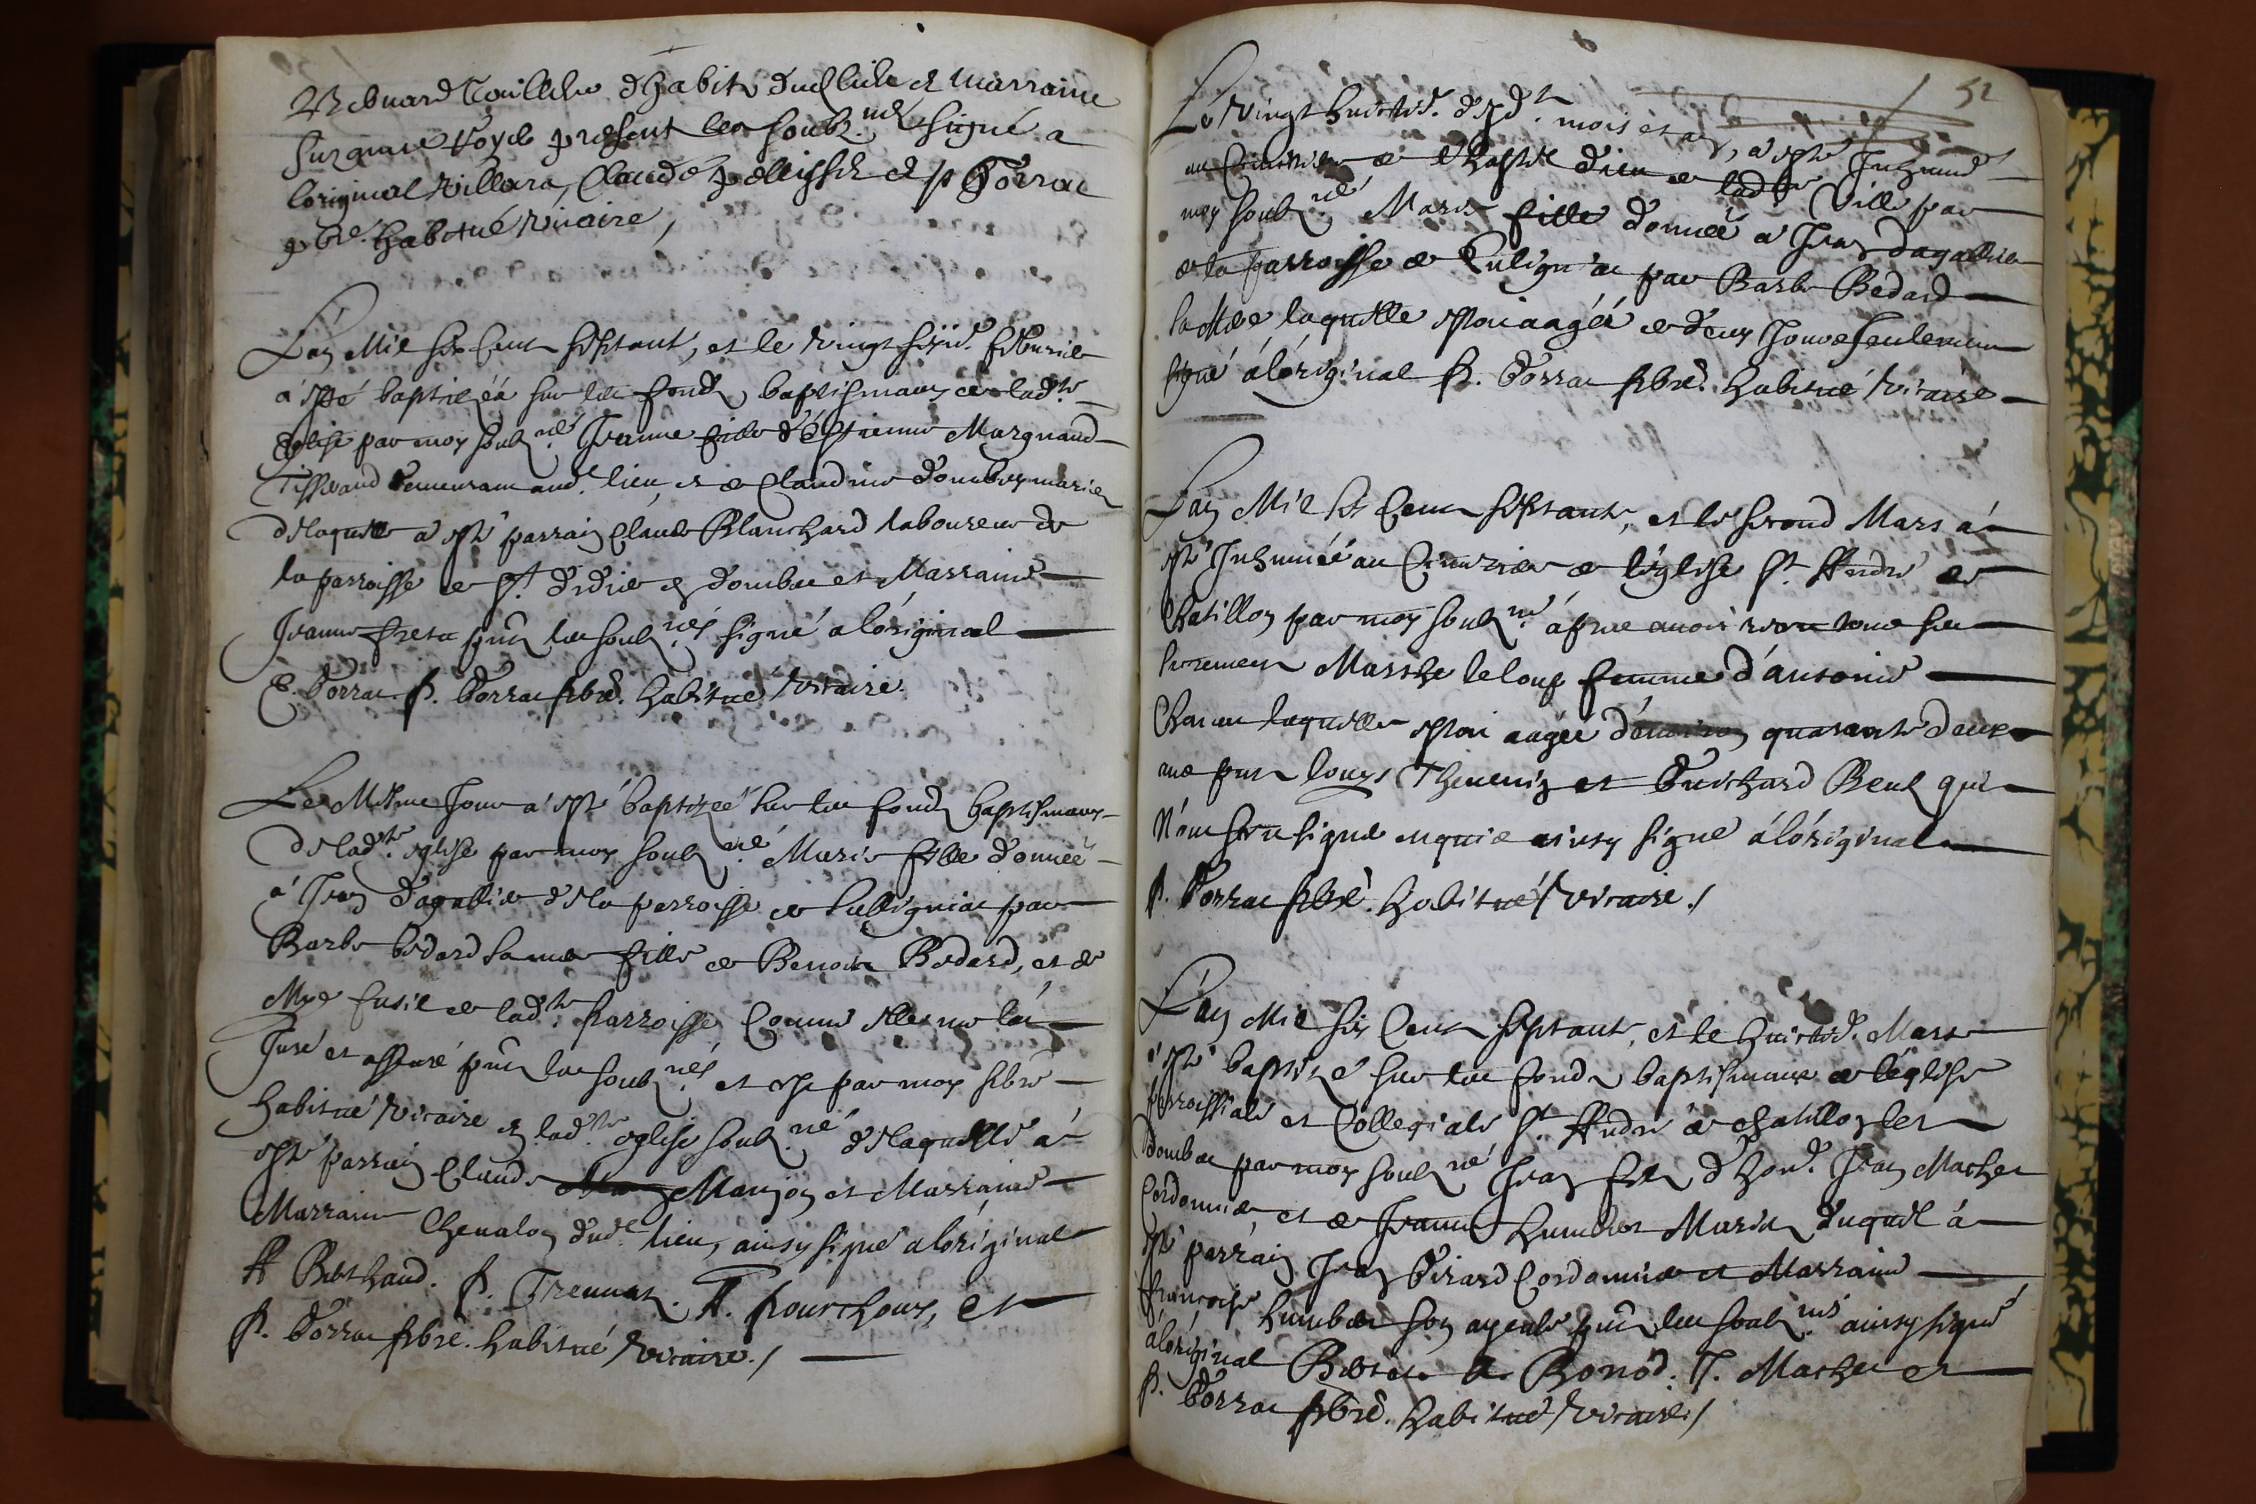 present les soubz.nés signé a
loriginal Villars, Claude pellissier et p Corrae
pbre. habitué vicaire,
L'an Mil six Cent septante, et le vingt sixie. febvrier
a esté baptizéé sur les fondz baptismaux de ladte
Eglise par moy soubz.né Jeanne fille d'Estienne Marguand
Tisserand demeurant aud. lieu, et de Claudine dombey mariez
de laquelle a esté parrain Claude Blanchard laboureur de
la parroisse de St. didier en dombes et Marraine
Jeanne pnts les soubz.nés signé a lóriginal
C. Corrae P. Corrae pbre. habitué vicaire.
Le Mesme Jour a esté baptizéé sur les fondz baptismaux
de ladte. eglise par moy soubz.né Marie fille donnéé
á Jean dagallier de la parroisse de Sulligniat par
Barbe bedard sa mere fille de Benoit Bedard, et de
de ladte. parroisse Comme elle me l'a
Juré et assuré pnts les soubz.nés et ce par moy pbre
habitué vicaire en ladte. eglise soubz.né de laquelle á
esté parrain Claude Manjon et Marraine
Marraine Chevalon dud. lieu, ainsy signé a lóriginal
A Berthaud. P. Trennat. A. pourchoux, et
P. Corrae pbre. habitué vicaire./
52
Le vingt huictie. desd. mois et an, a esté Inhumé
au Cimetiere de l'hostel dieu de ladte Ville par
moy soubz.né Marie fille donnéé a Jean dagallier
de la parroisse de Suligniat par Barbe Bedard
sa Mere laquelle estoit aagéé de deux Jours seulement
signé á lóriginal P. Corrae pbre. habitué vicaire
L'an Mil six Cent septante, et le second Mars á
esté Inhuméé au Cimetiere de l'église St. André de
Chatillon par moy soubz.né áprés avoir receu tous ses
sacremens Marthe leloup femme d'antoine
laquelle estoit aagéé d'environ quarante deux
ans pnts louys Thevenin et Guichard Beuf qui
N'ont sceu signer enquis ainsy signé á lóriginal
P. Corrae pbre. habitué vicaire./
L'an Mil six Cent septante, et le huictie. Mars
a esté baptizé sur les fondz baptismaux de l'église
parroissiale et Collegiale St. André de chatillon les
dombes par moy soubz.né Jean filz d'hon. Jean Macher
Cordonnier, et de Jeanne humbert Mariez duquel á
esté parrain Jean Girard Cordonnier et Marraine
françoise humbert son ayeule pnts les soubz.nés ainsy signé
á lóriginal A. Bonod. J. Macher et
P. Corrae pbre. habitué vicaire./